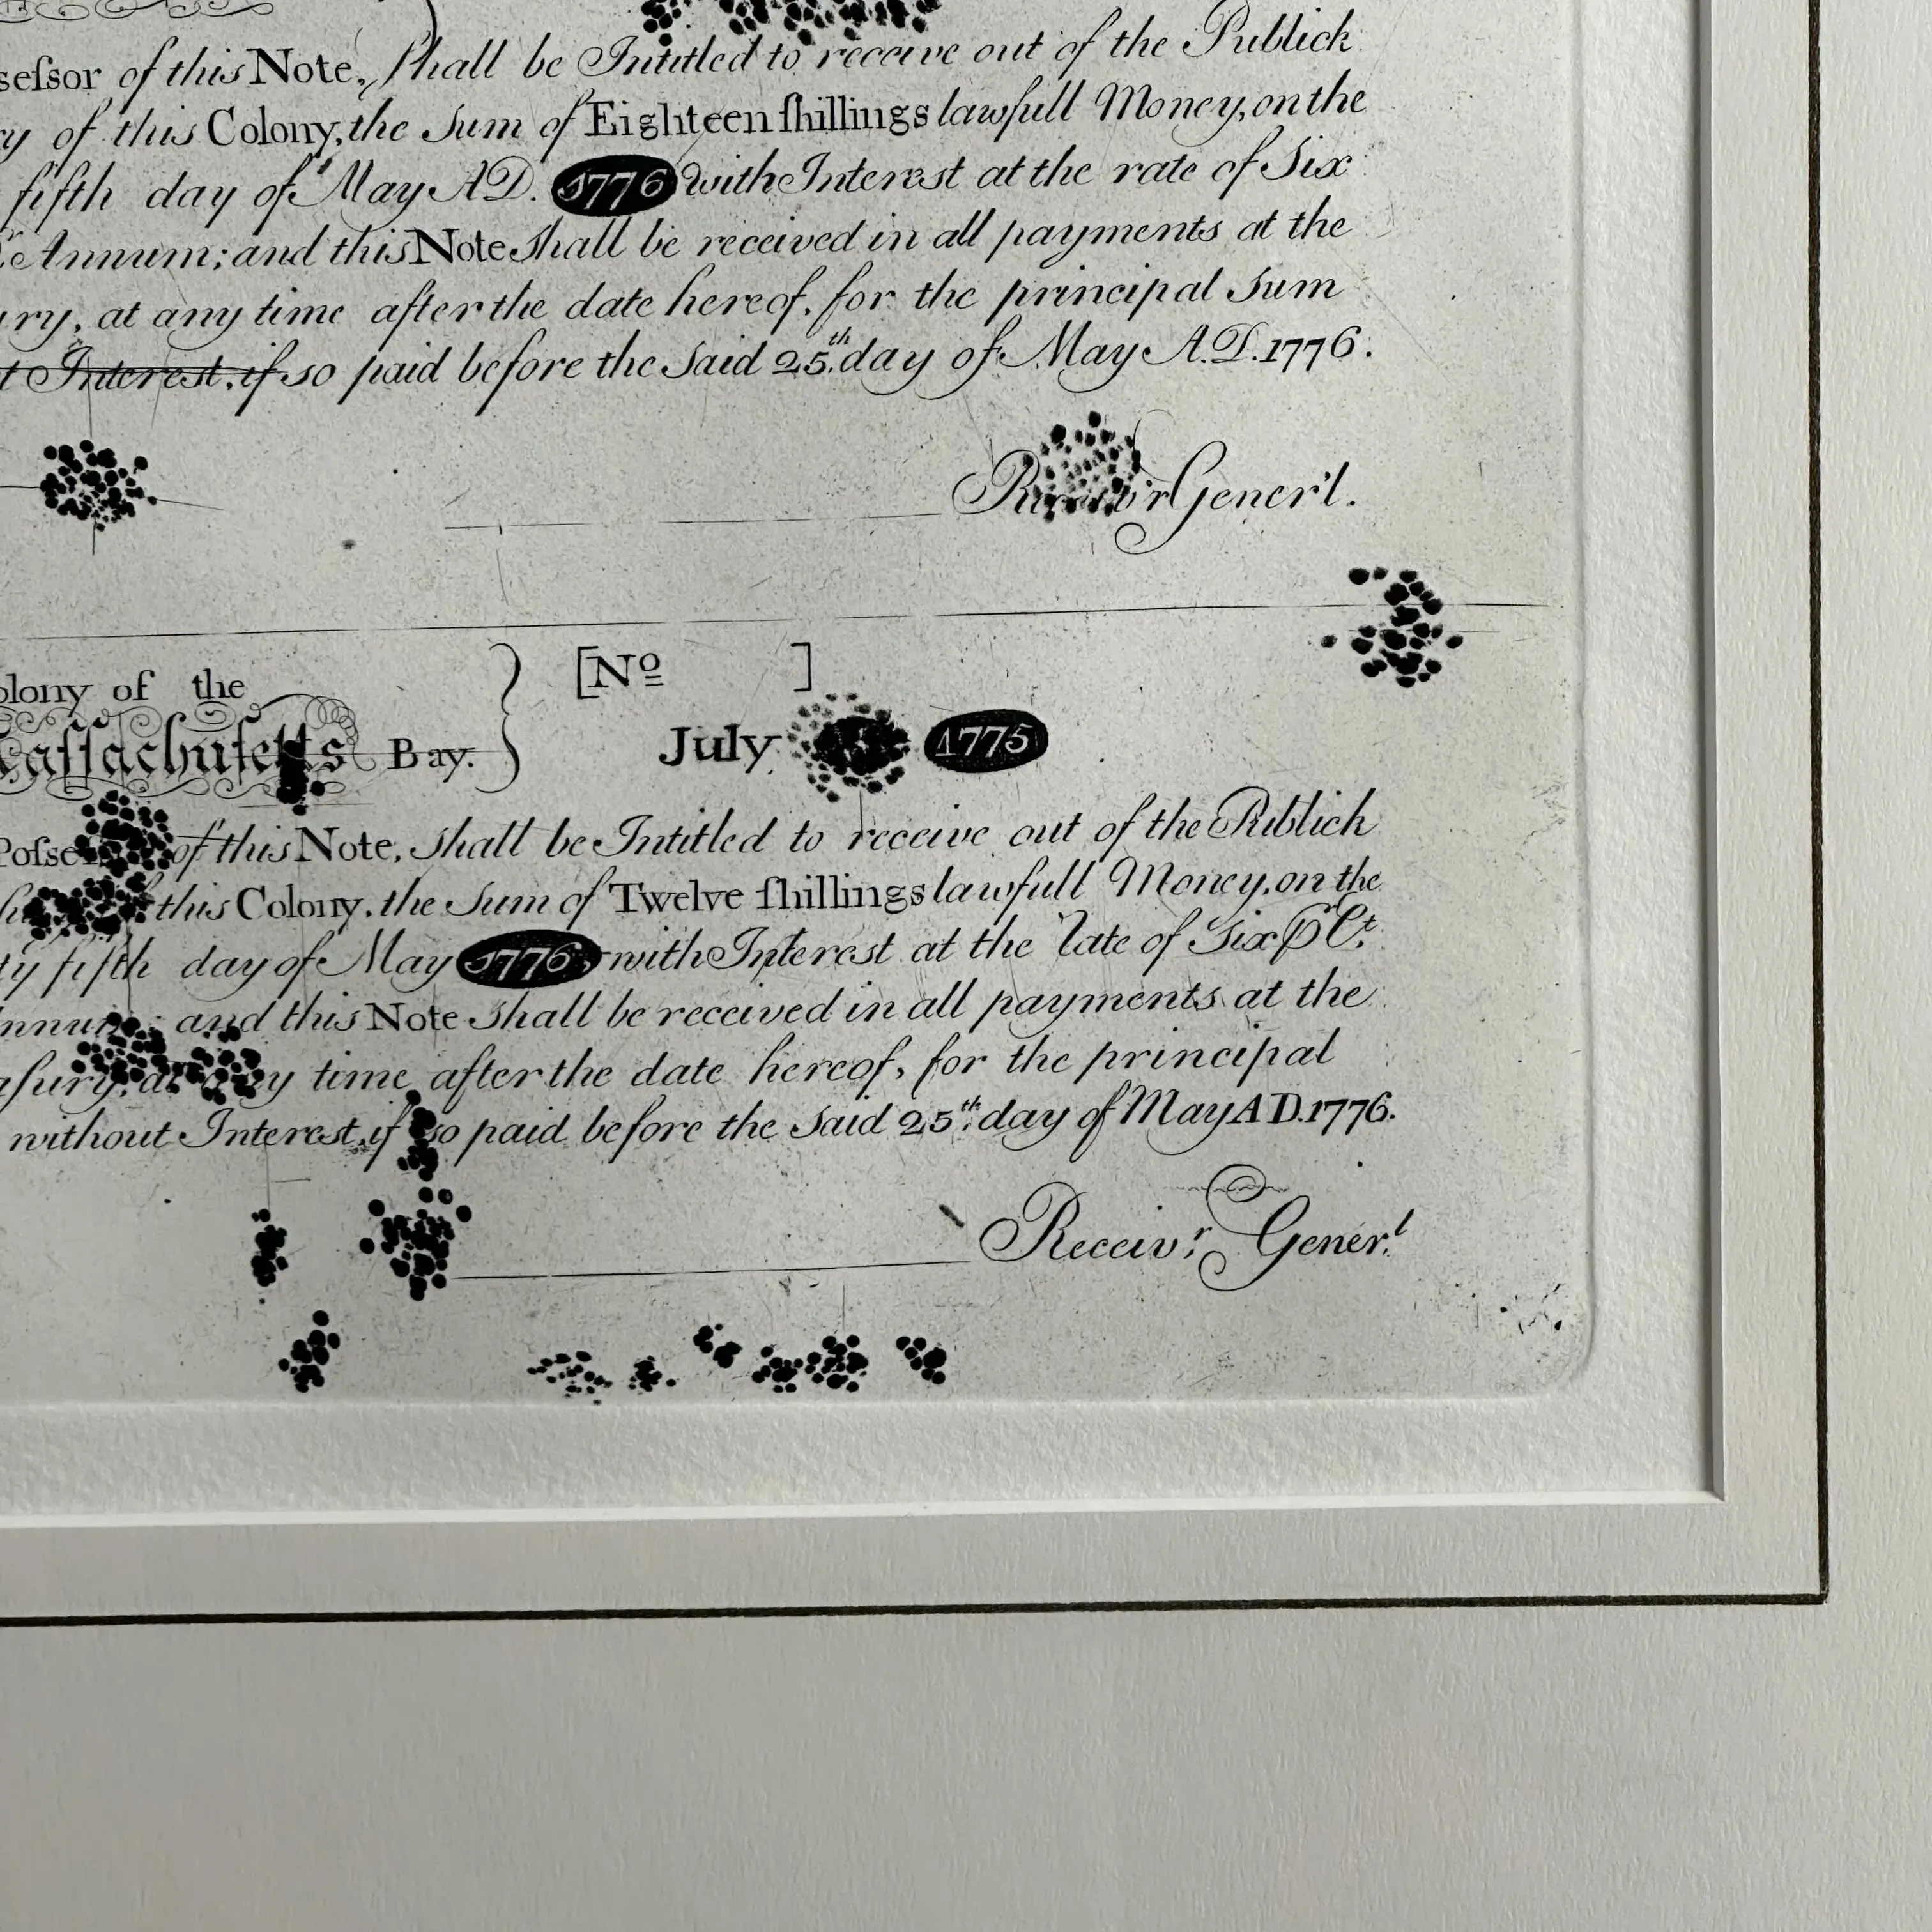 seſsor of this Note, shall be Intitled to receive out of the Publick
ry of this Colony, the Sum of Eighteen ſhillings lawfull Money, on the
fifth day of May AD. 1776 with Interest at the rate of Six
Annum; and this Note Shall be received in all payments at the
ury, at any time after the date hereof, for the principal Sum
t Interest, if so paid before the Said 25th. day of May A.D. 1776.
Gener'l.
olony of the
aſſachuſetts Bay.
[No ]
July 1775
Poſse of this Note, shall be Intitled to receive out of the Publick
this Colony, the Sum of Twelve ſhillings lawfull Money, on the
ty fifth day of May 1776 with Interest at the Rate of Six P Ct.
nnum; and this Note Shall be received in all payments at the
aſury, at any time after the date hereof, for the principal
without Interest, if so paid before the Said 25th. day of May AD. 1776.
Receiv.r Gener.l